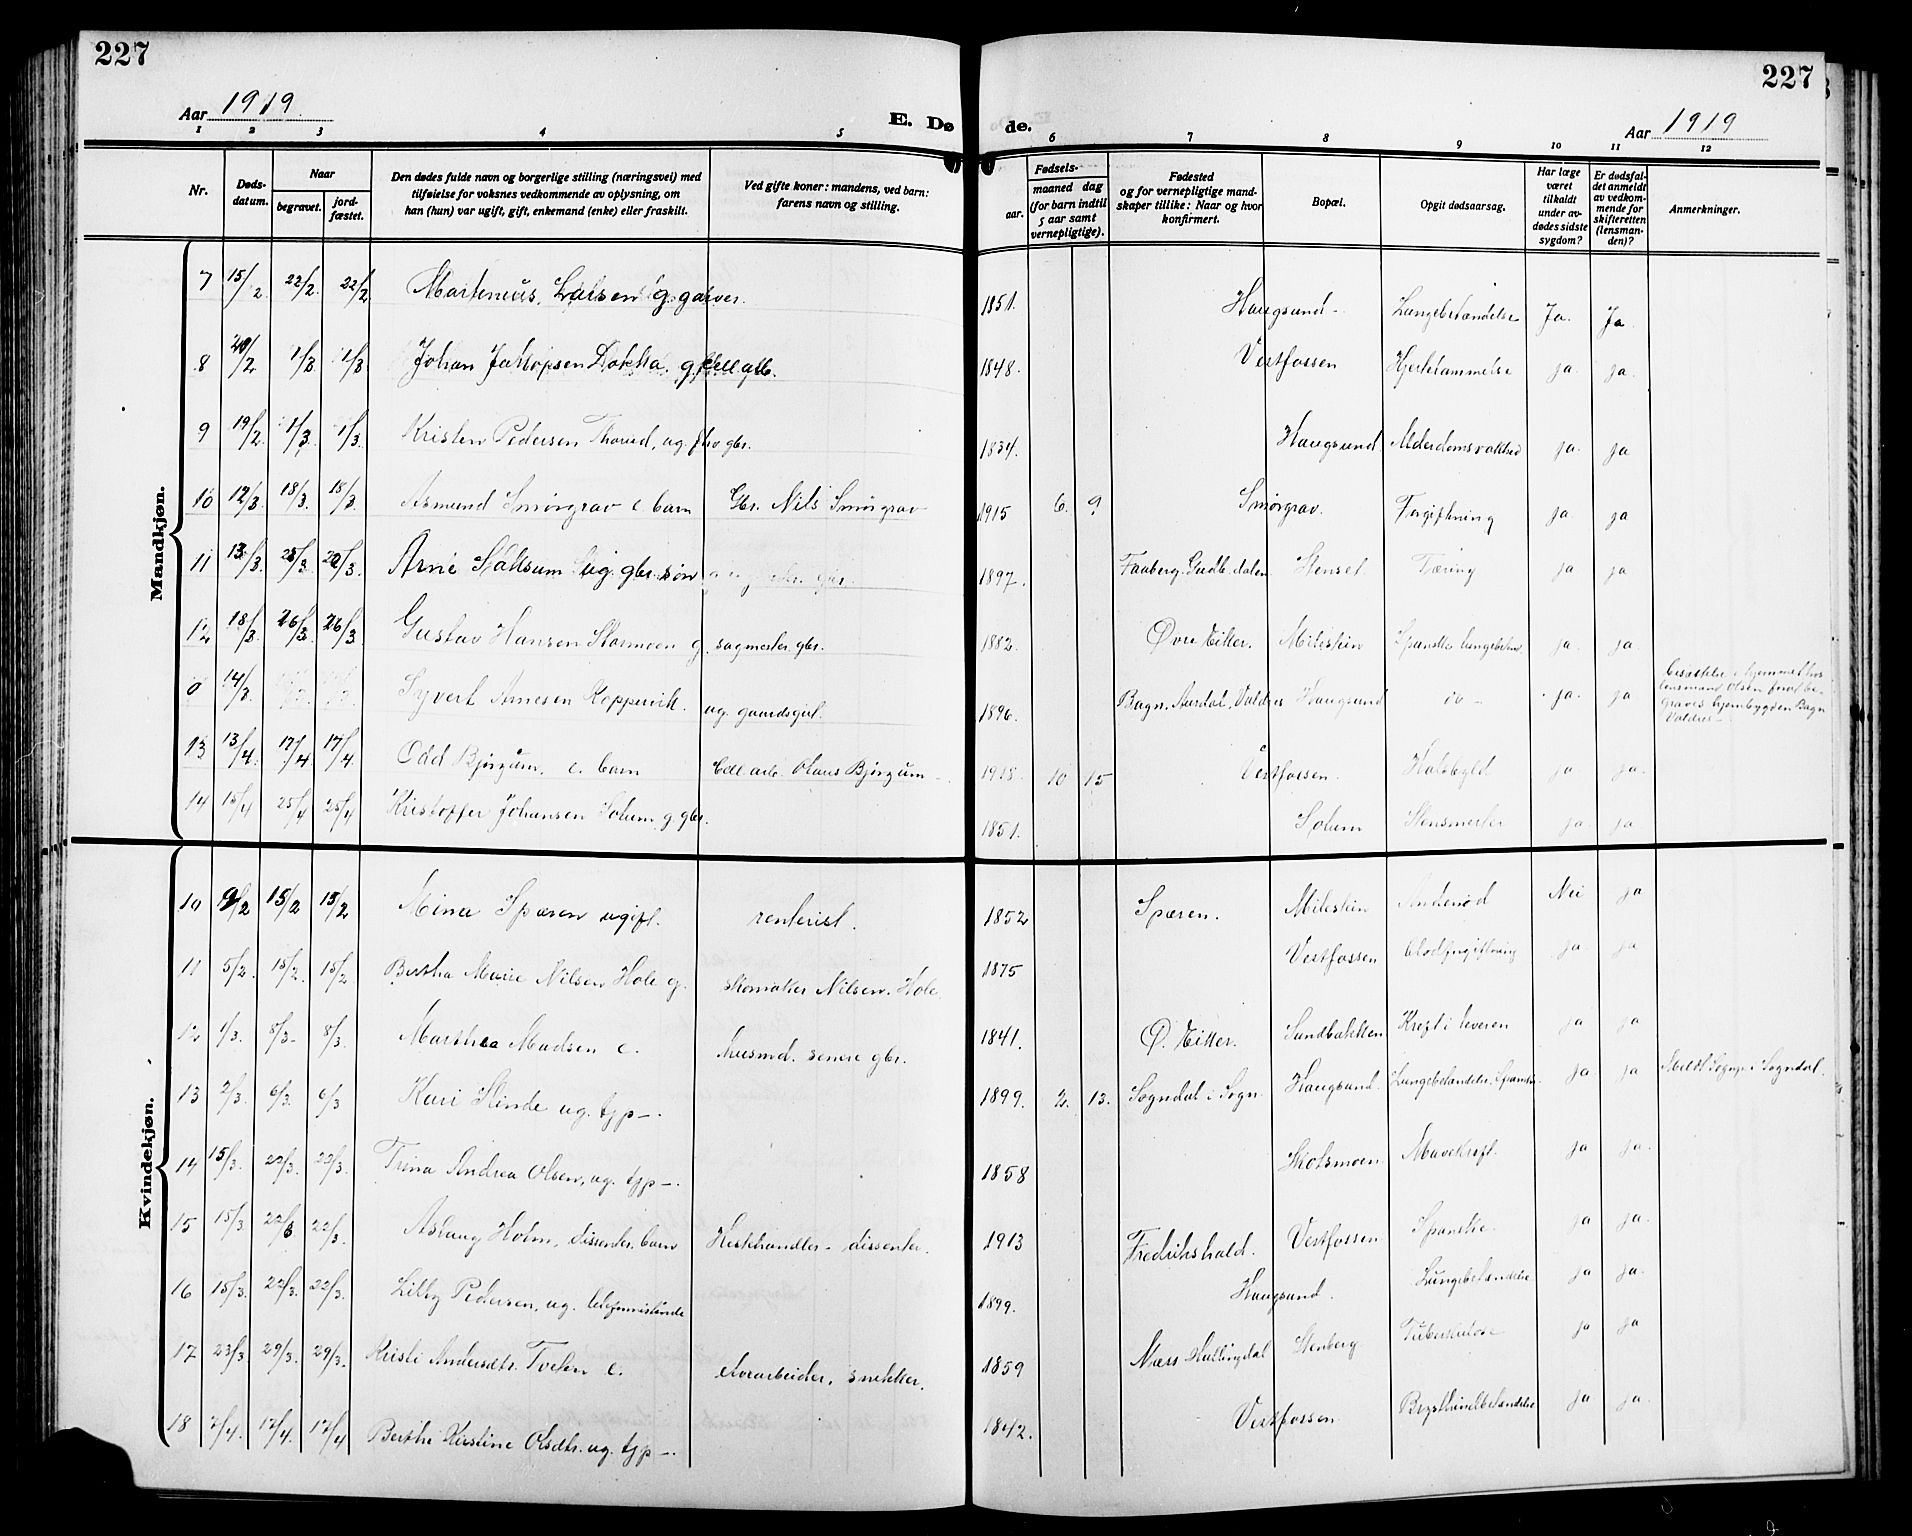 227
227
Aar 1919
E. Dø de.
Aar 1919
1 2 3 4 5 6 7 8 9 10 11 12
Nr.
Døds-datum.
Naar
begravet.
jord-fæstet.
Den dødes fulde navn og borgerlige stilling (næringsvei) med
tilføielse for voksnes vedkommende av oplysning, om
han (hun) var ugift, gift, enkemand (enke) eller fraskilt.
Ved gifte koner: mandens, ved barn:
farens navn og stilling.
Fødsels-
aar.
maaned dag
(for barn indtil
5 aar samt
vernepligtige).
Fødested
og for vernepligtige mand-
skaper tillike: Naar og hvor
konfirmert.
Bopæl.
Opgit dødsaarsag.
Har læge
været
tilkaldt
under av-
dødes sidste
sygdom?
Er dødsfal-
det anmeldt
av vedkom-
mende for
skifteretten
(lensman-
den)?
Anmerkninger.
Mandkjøn.
7 15/2 22/2 22/2 Marteneus Larsen g. garver. 1851. Haugsund Lungebetændelse Ja. Ja.
8 20/2 1/3 1/3 Johan Jakopsen Dokka. g. cell. arb. 1848. Vestfossen Hjertelammelse ja. ja.
9 19/2 1/3 1/3. Kristen Pedersen Thorud, ug. fhv gbr. 1834. Haugsund Alderdomsvakhed ja. ja
10 12/3. 18/3. 18/3. Asmund Smørgrav e. barn Gbr. Nils Smørgrav 1915 6. 9. Smørgrav. Forgiftning ja ja
11 13/3. 25/3. 22/3. Arne ug. gbr. søn 1897. Faaberg. Gudb. dalen Stenset Tæring ja ja
12 18/3 26/3. 26/3. Gustav Hansen Stormoen g. sagmester gbr. 1882. Øvre Eiker. Milestein Spanske lungebetænd ja. ja.
0 14/3. Syvert Arnesen Koppervik. ug. gaardsgut. 1896. Bagn. Aurdal, Valdres Haugsund do - ja. ja
lensmand Olsen
graves hjembygden Bagn
Valdres -
13 13/4. 17/4 17/4. Odd Bjørgum. e. barn Cell. arb. Olaus Bjørgum 1918 10 15 Vestfossen. Halsbyld ja ja.
14 15/4 25/4 25/4 Kristoffer Johansen Solum g. gbr. 1851. Solum ja. ja
Kvindekjøn.
10 9/2 15/2 15/2 Mina Spæren ugift. rentenist. 1852 Spæren. Milestein Andenød Nei ja
11 5/2. 15/2. 15/2 Bertha Marie Nilsen Hole g. skomaker Nilsen. Hole. 1875 Vestfossen Blodforgiftning ja. ja
12 1/3. 8/3- 8/3. Marthea Madsen e. husmd. senere gbr. 1841. Ø. Eiker. Sundbakken Kreft i leveren ja ja
13 2/3. 6/3. 6/3 Kari Slinde ug. tjp-. 1899. 2. 13. Sogndal i Sogn. Haugsund. Lungebetændelse, Spanske ja ja Meldt Sognpr. i Sogndal.
14 15/3. 22/3. 22/3. Trina Andrea Olsen, ug. tjp-. 1858 Skotsmoen. Mavekreft. ja ja.
15 15/3. 22/3 22/3. Aslaug Holm, dissenter. barn Hestehandler - dissenter. 1913 Fredrikshald. Vestfossen Spanske. ja ja.
16 15/3. 22/3. 22/3. Lilly Pedersen, ug. telefonistinde 1899. Haugsund. Lungebetændelse ja ja.
17 23/3. 29/3. 29/3. Kristi Andersdtr. Tveten e. elvarbeider, snekker. 1859 Næss Hallingdal Stenberg Tuberkulose ja ja
18 7/4. 12/4. 12/4 Berthe Kirstine Olsdtr. ug. tjp-. 1842. Vestfossen Brysthinnebetændelse ja ja.